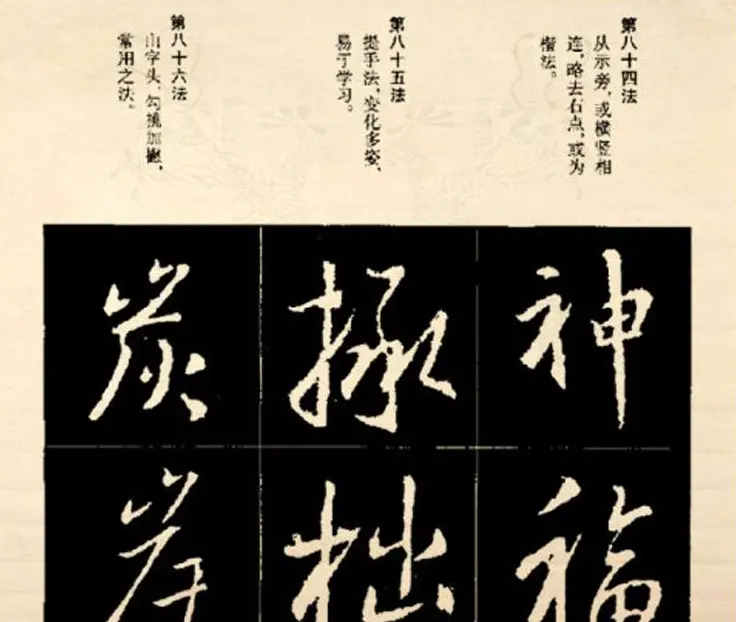 第八十四法
从示旁，或横竖相
连，略去右点，或为
楷法。
第八十五法
提手法，变化多姿，
易于学习。
第八十六法
山字头，勾挑加撇，
常用之法。
神福
掾拙
炭岸